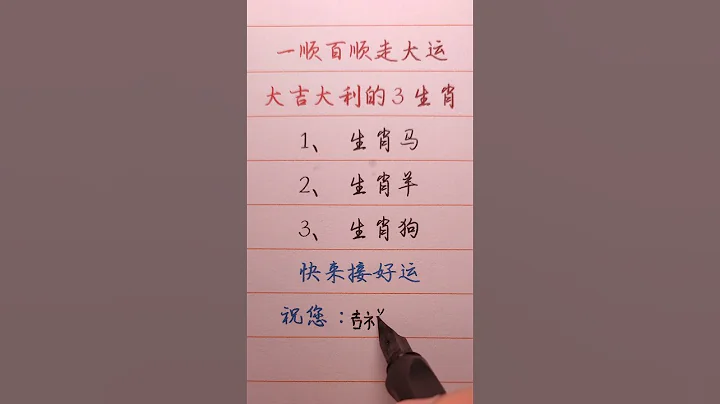 一顺百顺走大运
大吉大利的3生肖
1、 生肖马
2、 生肖羊
3、 生肖狗
快来接好运
祝您：吉